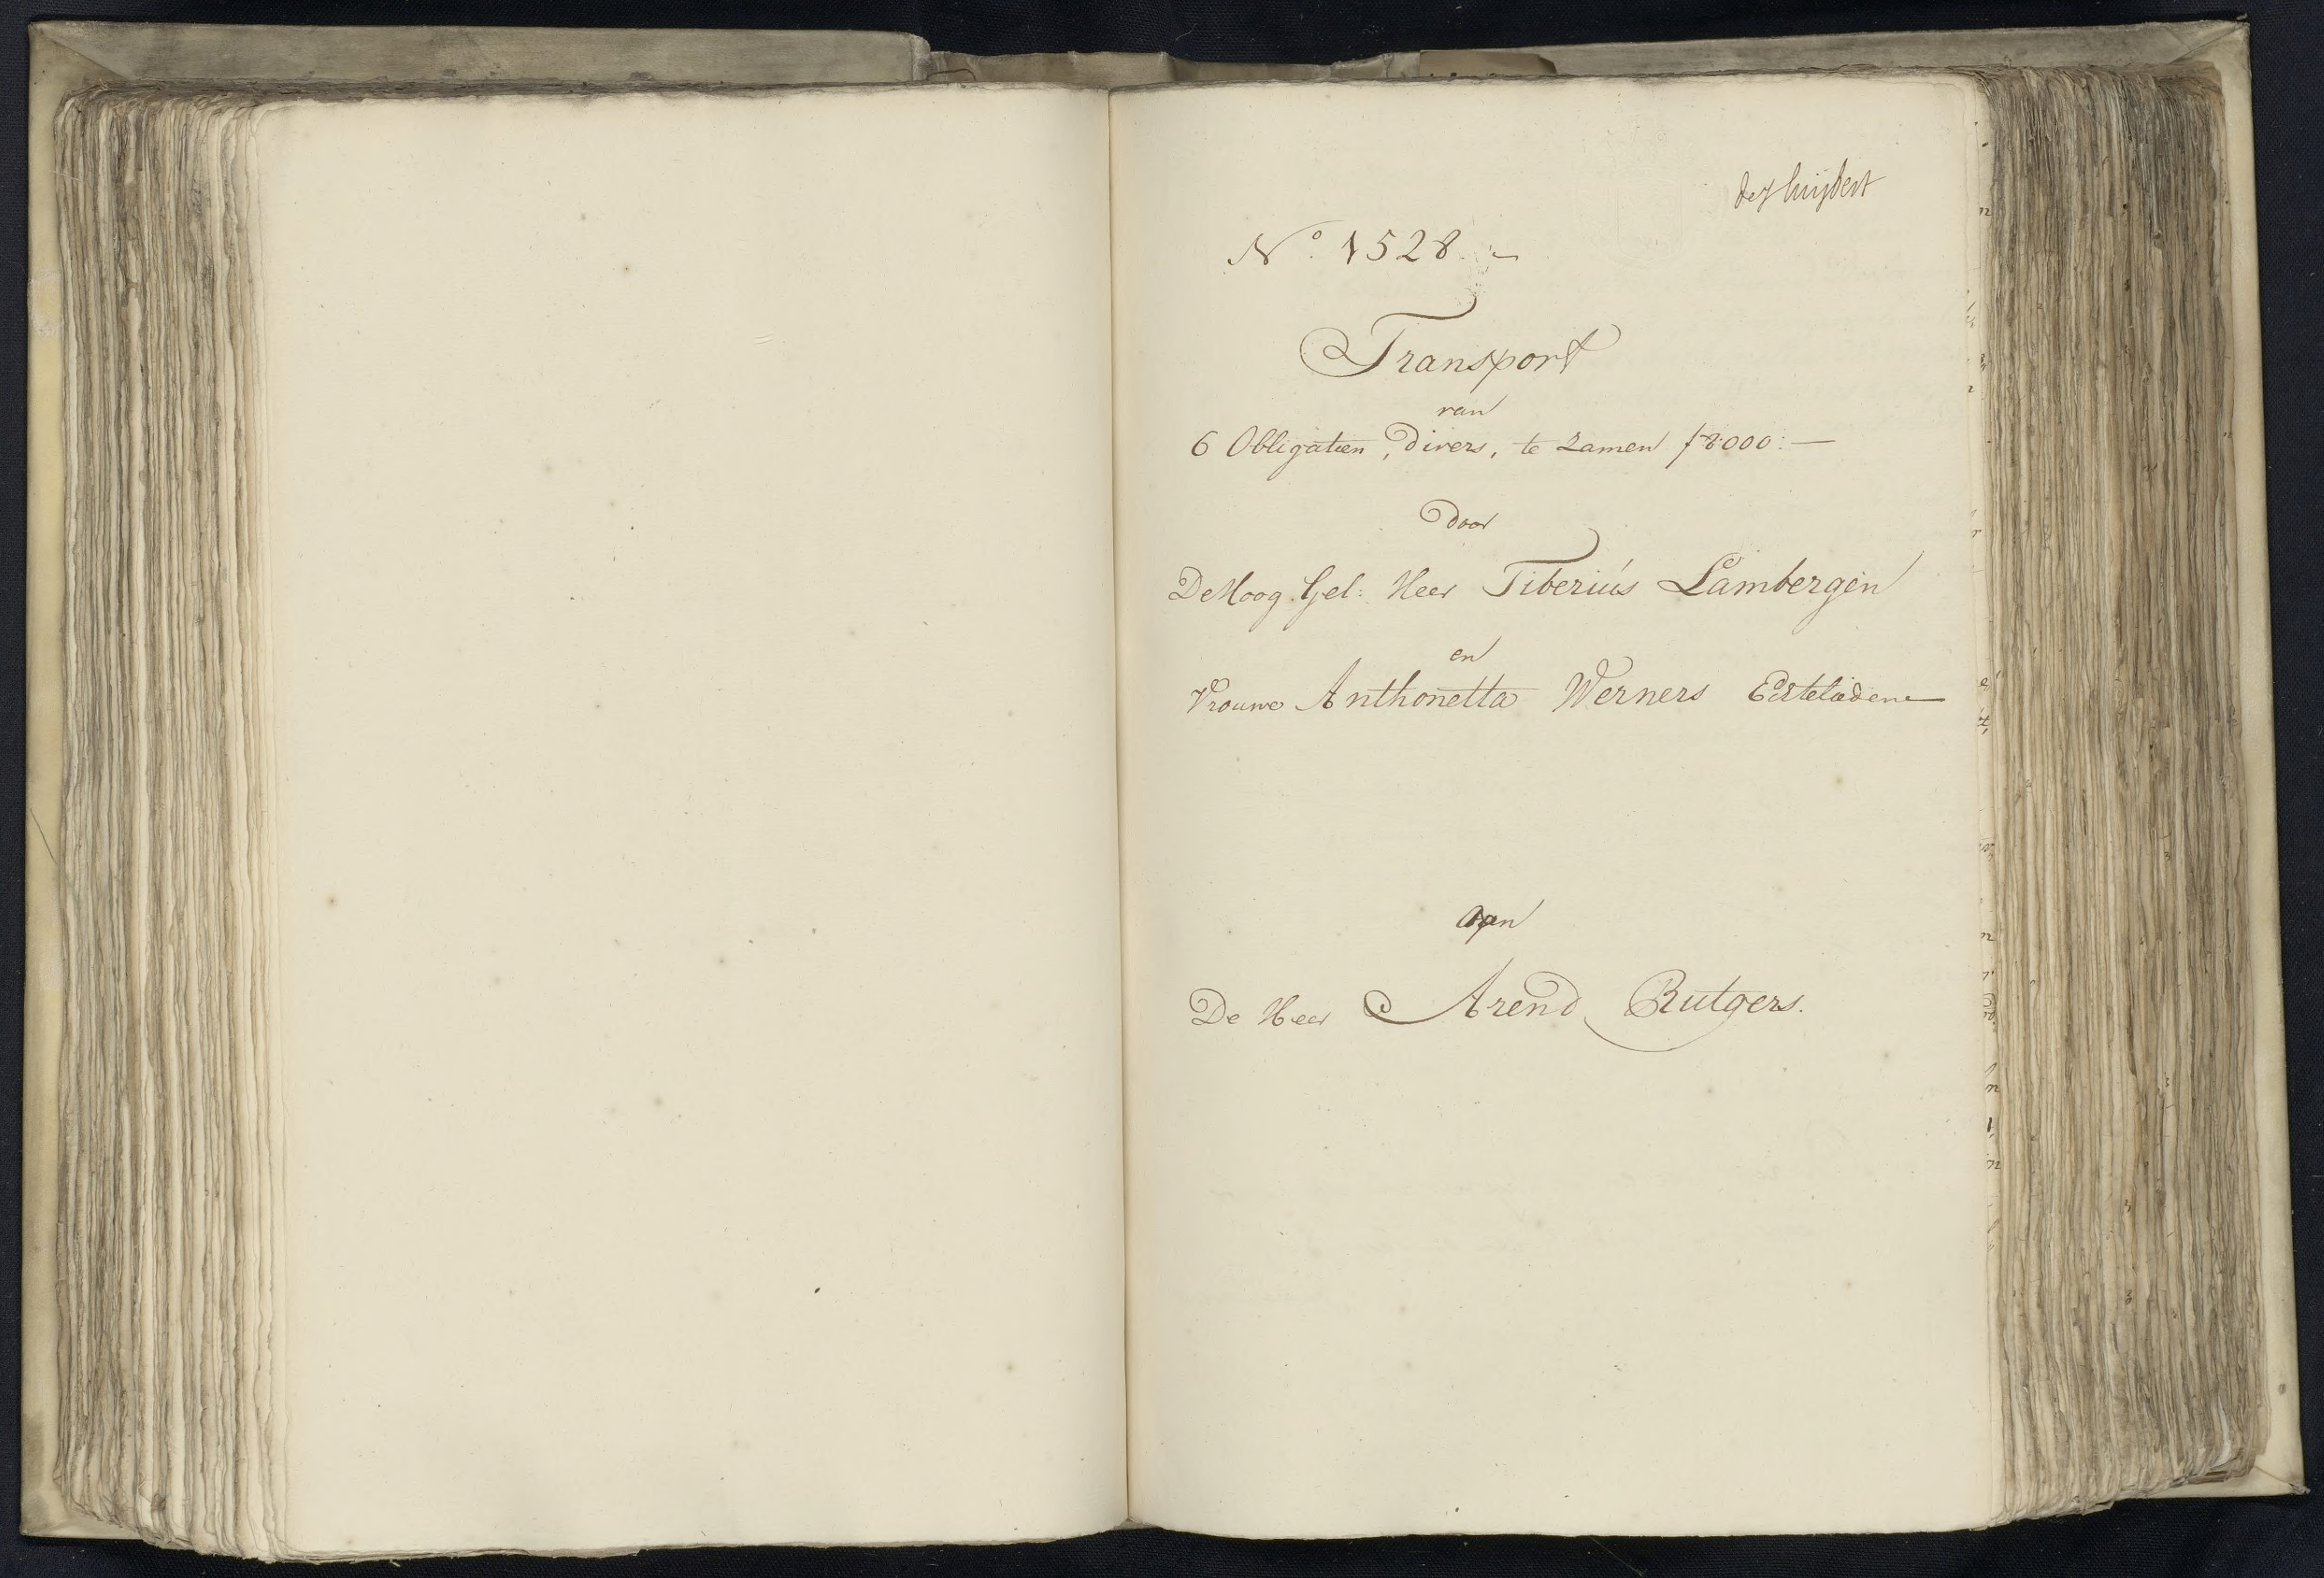 N.o 1528. :-
Transport
van
6 Obligatien, divers, te zamen f 8000:—
Door
De Hoog Gel: Heer Tiberius Lambergen
en
Vrouwe Anthonetta Werners Echtelieden
Aan
De Heer Arend Rutgers.